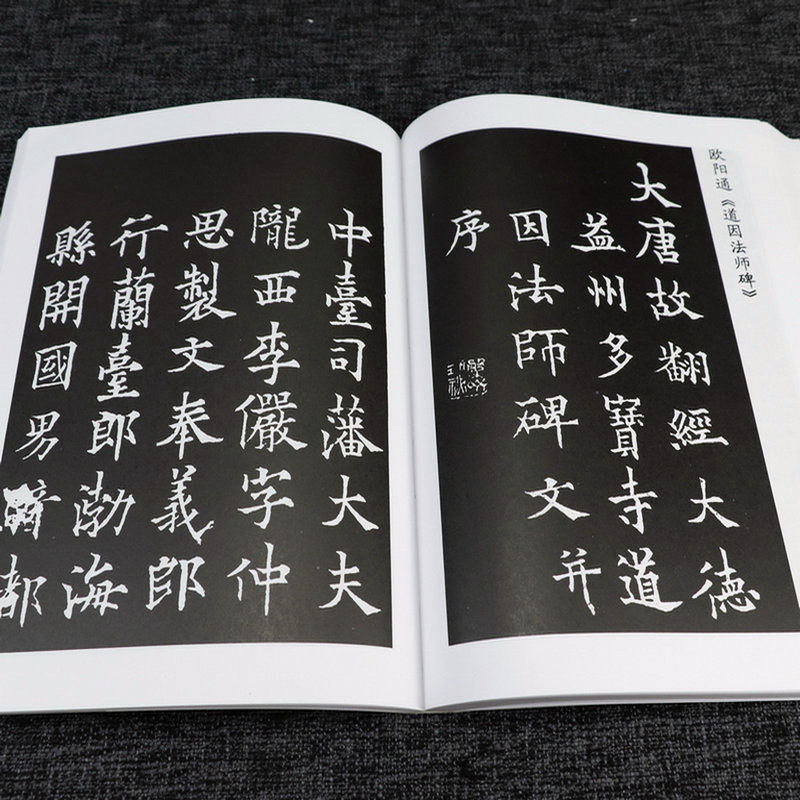 欧阳通《道因法师碑》
大唐故翻經大德
益州多寶寺道
因法師碑文并
序
中臺司藩大夫
隴西李儼字仲
思製文奉義郎
行蘭臺郎渤海
縣開國男